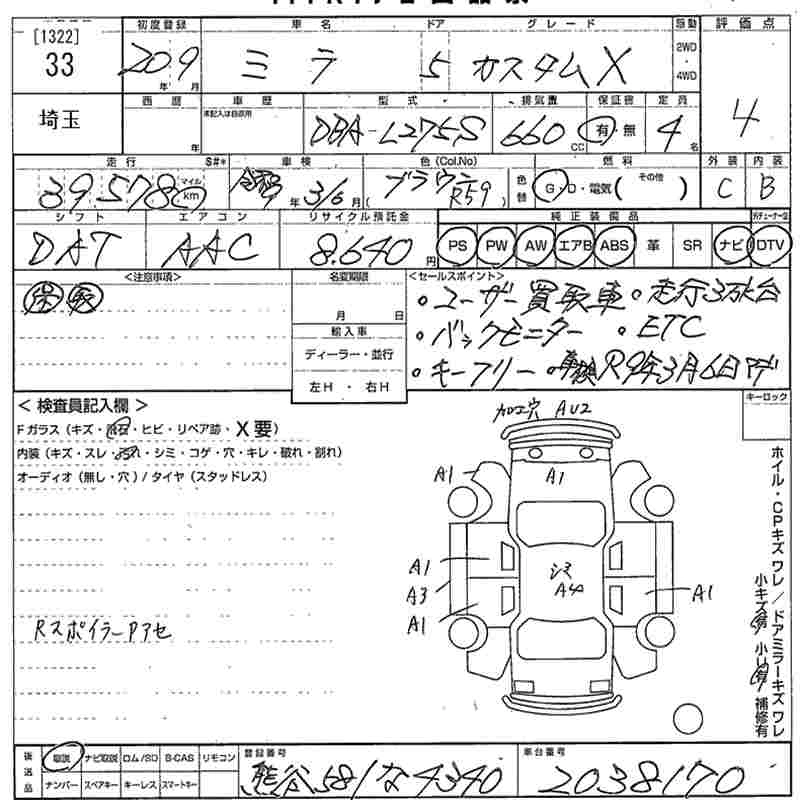 [1322]
33
埼玉
初度登録 車名 ドア グレード 駆動 評価点
20年9月 ミラ 5 カスタムX 2WD・4WD 4
西暦 車歴 型式 排気量 保証書 定員
年 未記入は自家用 DBA-L275S 660cc 有・無 4名
走行 S#* 車検 色(Col.No) 燃料 外装 内装
39578 マイル km 令和 年3/6月 ブラウン R59 色替 G・D・電気( その他 ) C B
シフト エアコン リサイクル預託金 純正装備品
DAT AAC 8.640円 PS PW AW エアB ABS 革 SR ナビ DTV
<注意事項> 名変期限 <セールスポイント>
保 取 月 日
・ユーザー買取車 ・走行3万k台
輸入車
・バックモニター ・ETC
ディーラー・並行
・キーフリー ・車検R9年3月6日マデ
左H ・ 右H
< 検査員記入欄 > キーロック
Fガラス(キズ・飛石・ヒビ・リペア跡・X要)
内装(キズ・スレ・汚れ・シミ・コゲ・穴・キレ・破れ・割れ)
オーディオ(無し・穴)/タイヤ(スタッドレス)
加工穴 AU2
A1 A1
A1
シミ
A4
A3
A1
A1
Rスポイラ-Pアセ
ホイル・CPキズワレ/ドアミラーキズワレ
小キズ有 小U有 補修有
後送品 取説 ナビ取説 ロム/SD B-CAS リモコン
ナンバー スペアキー キーレス スマートキー
登録番号 車台番号
熊谷581な4340 2038170